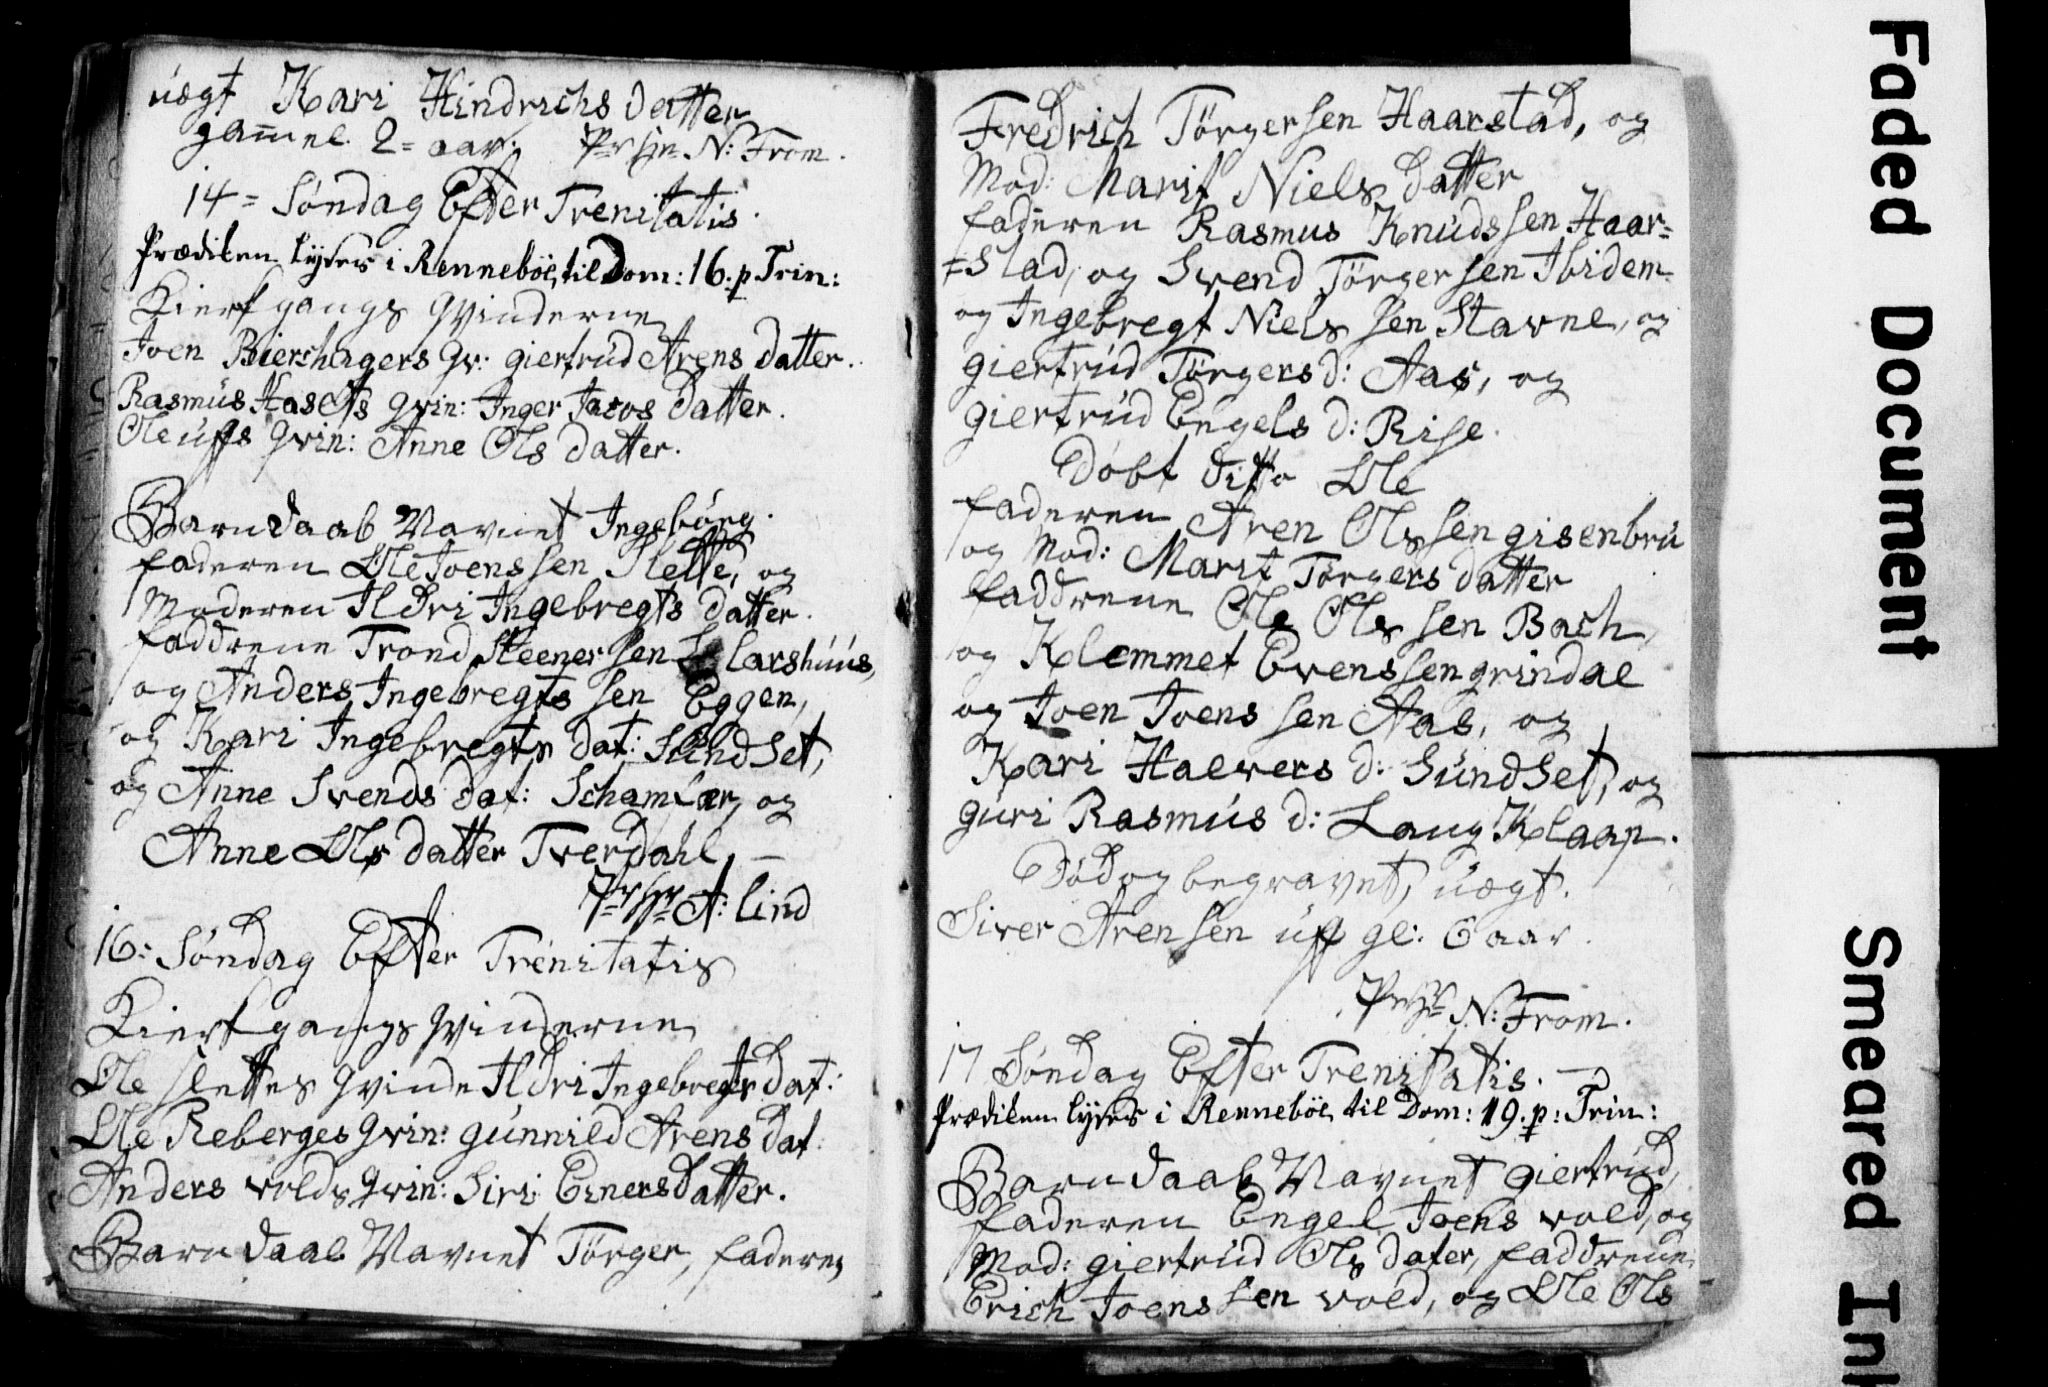 uægt Kari Hindrichs datter
gam̄el 2= aar: Pr Hr N: From.
14= Søndag Efter Trenitatis.
Prædiken lyses i Renneboe, til Dom: 16. p Trin:
Kierkgangs Qvinderne
Joen Bierchagers qv: giertrud Arens datter.
Rasmus Hasets qvin: Inger datter.
Ole uffs qvin: Anne Ols datter.
Barn daab Navnet Ingebørg.
faderen Ole Joenssen Slette, og
Moderen Ildri Ingebregts datter.
faddrene Trond Steenersen larshuus,
og Anders Ingebregts sen Eggen,
og Kari Ingebregts dat: Sundset,
og Anne Svends dat: Schamfær, og
Anne Ols datter Tverdahl. —
Pr Hr A: Lind
16: Søndag Efter Trenitatis
Kierkgangs Qvinderne
Ole Slettes qvinde Ildri Ingebregts dat:
Ole Reberges qvin: gunnild Arens dat:
Anders volds qvin: Siri Einersdatter.
Barn daab Navnet Tørger, faderen
Fredrich Tørgersen Haarstad, og
Mod: Marit Niels datter
faderen Rasmus Knudssen Haar=
=stad, og Svend Tørgersen Ibidem
og Ingebregt Niels sen Stavne, og
giertrud Tørgers d: Aas, og
giertrud Engels d: Rise.
Døbt ditto Ole
faderen Aren Olssen gisenbru
og Mod: Marit Tørgers datter
faddrene Ole Ols sen Bach,
og Klemmet Evenssen grindal
og Joen Joens sen Aas, og
Kari Halvers d: Sundset, og
guri Rasmus d: Lang Klaap.
Død og begravet, uægt.
Siver Arensen uff gl: 6 aar.
Pr Hr N: From.
17 Søndag Efter Trenitatis. —
Prædiken lyses i Renneboe til Dom: 19. p: Trin:
Barn daab Navnet giertrud,
faderen Engel Joens vold, og
Mod: giertrud Ols dater, faddrene
Erich Joens sen vold, og Ole Ols
Faded Document
Smeared In